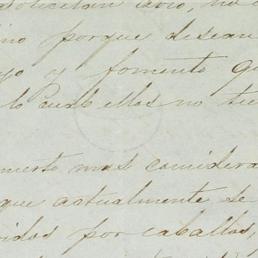 solicitan
ino porque desean
yo y fomento q
lo cual ellos no tie
mente mas considera
que actualmente se
vidas por caballos,